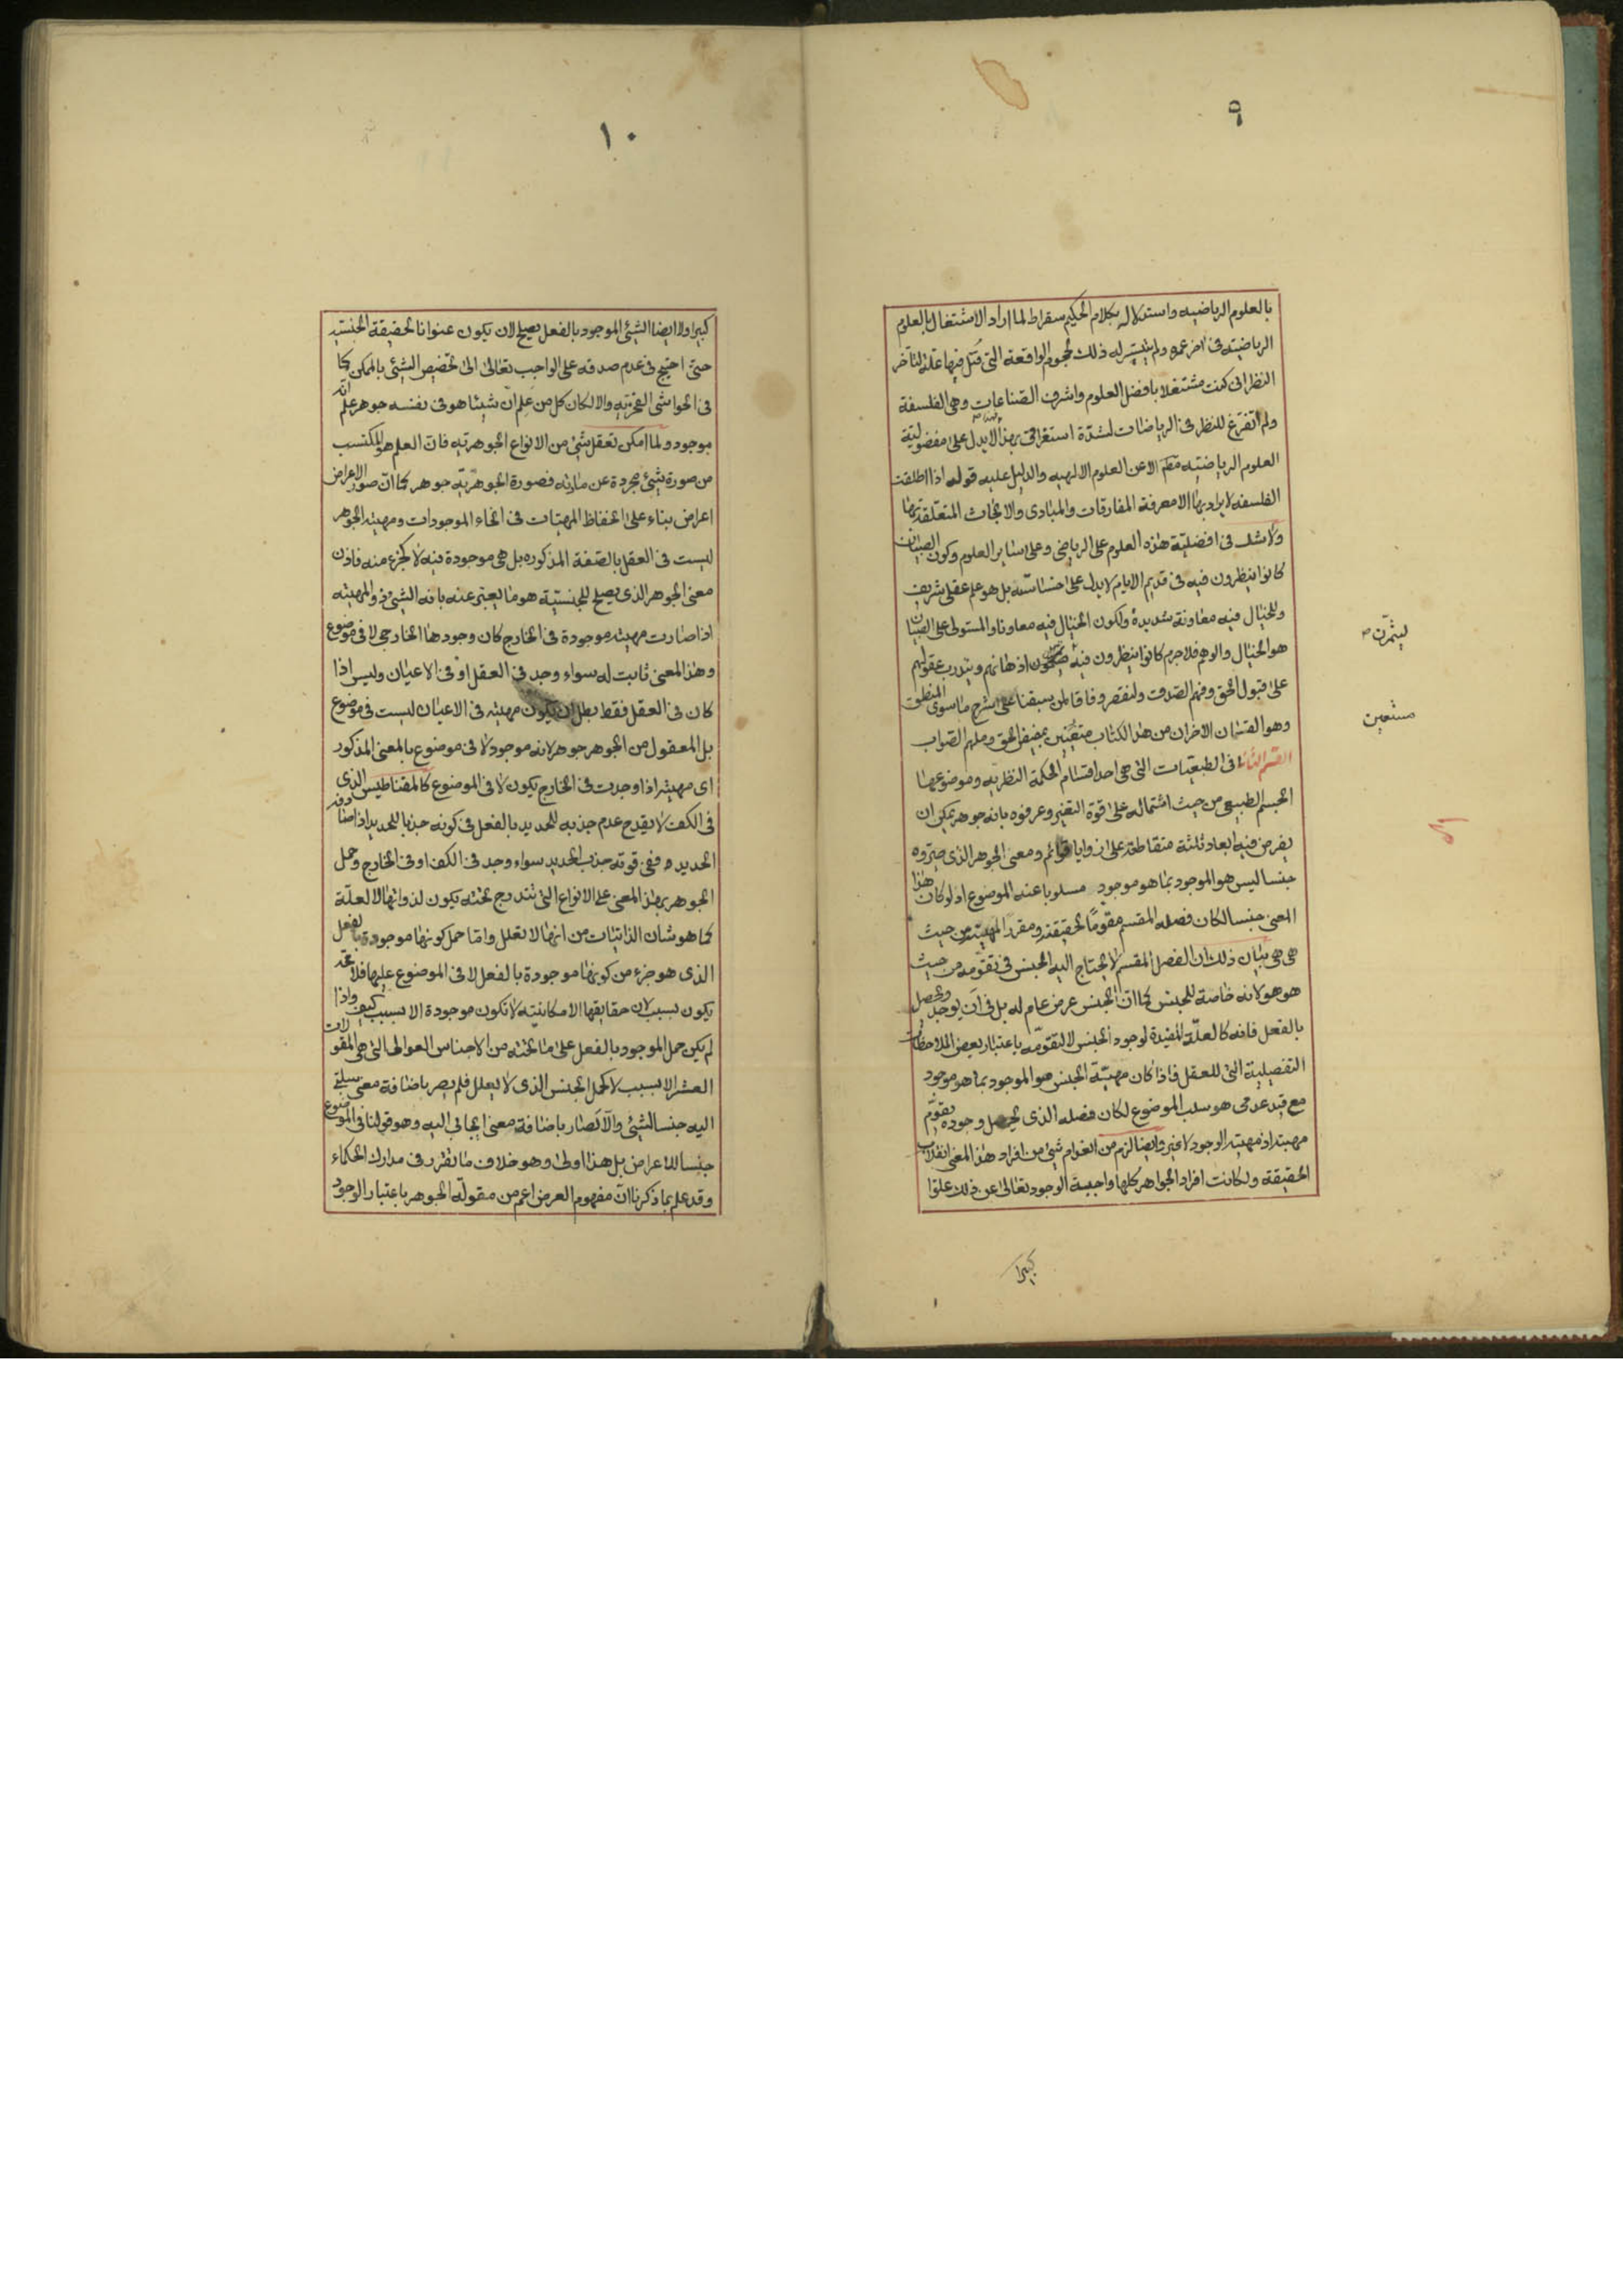 ٩
بالعلوم الرياضيه واستدلاله بكلام الحكيم سقراط لما اراد الاشتغال بالعلوم
الرياضية فى اخر عمره ولم يتيسر له ذلك لهجوم الواقعة التى قتل فيها علة لتأخر
النظر انى كنت مشتغلا بافضل العلوم واشرف الصناعات وهى الفلسفة
ولم اتفرغ للنظر فى الرياضات لشدة استغراقى بهذا لايدل على مفضولية
العلوم الرياضيه الا عن العلوم الالهيه والدليل عليه قوله اذا اطلقت
الفلسفه لايراد بها الا معرفة المفارقات والمبادى والابحاث المتعلقة بها
ولاشك فى افضلية هذه العلوم على الرياضى وعلى ساير العلوم وكون الصبيان
كانوا ينظرون فيه فى قديم الايام لايدل على خساسته بل هو علم عقلى شريف
وللخيال فيه معاونة شديدة ولكون الخيال فيه معاونا والمستولى على الصبيان
هو الخيال والوهم فلاجرم كانوا ينظرون فيه اذهانهم ويتدرب عقولهم
ليتمرّن
على قبول الحق وفهم الصدق ولنقصر وفاقا لمن سبقنا على شرح ما سوى المنطق
وهو القسمان الاخران من هذا الكتاب بمفيض الحق وملهم الصواب
مستعين
القسم الثانى فى الطبيعيات التى هى احد اقسام الحكمة النظريه وموضوعها
الجسم الطبيعى من حيث اشتماله على قوة التغير وعرفوه بانه جوهر يمكن ان
يفرض فيه ابعاد ثلثة متقاطعة على زوايا قوائم ومعنى الجوهر الذى صيروه
جنسا ليس هو الموجود بما هو موجود مسلوبا عنه الموضوع اذ لو كان هذا
المعنى جنسا لكان فصله المقسم مقوما لحقيقته ومقرر المهيته من حيث
هى هى بيان ذلك ان الفصل المقسم لا يحتاج اليه الجنس فى تقومه من حيث
هو هو لانه خاصة للجنس كما ان الجنس عرض عام له بل فى ان يوجد ويحصل
بالفعل فانه كالعلة المفيدة لوجود الجنس لا لتقومه باعتبار بعض الملاحظات
التفصيلية التى للعقل فاذا كان مهية الجنس هو الموجود بما هو موجود
مع قيد عدمى هو سلب الموضوع لكان فصله الذى يحصل وجوده يقوّم
مهيته اذ مهيته الوجود لاغير وايضا لزم من انعدام شئ من افراد هذا المعنى انقلاب
الحقيقة ولكانت افراد الجواهر كلها واجبة الوجود تعالى عن ذلك علوا
كبيرا
١٠
كبيرا ولا ايضا الشئ الموجود بالفعل يصلح لان يكون عنوانا لحقيقة الجنسية
حتى احتيج فى عدم صدقه على الواجب تعالى الى تخصيص الشئ بالممكن كما
فى الحواشى الفخرية والا لكان كل من علم ان شيئا هو فى نفسه جوهر علم انه
موجود ولما امكن تعقل شئ من الانواع الجوهرية فان العلم هو المكتسب
من صورة شئ مجردة عن مادته فصورة الجوهرية جوهر كما ان صور الاعراض
اعراض بناء على انحفاظ المهيات فى انحاء الموجودات ومهية الجوهر
ليست فى العقل بالصفة المذكوره بل هى موجودة فيه لا كجزء منه فاذن
معنى الجوهر الذى يصلح للجنسية هو ما يعبر عنه بانه الشئ ذو المهيته
اذا صارت مهيته موجودة فى الخارج كان وجودها الخارجى لا فى موضوع
وهذا المعنى ثابت له سواء وجد فى العقل او فى الاعيان وليس اذا
كان فى العقل فقط بطل ان يكون مهيته فى الاعيان ليست فى موضوع
بل المعقول من الجوهر جوهر لانه موجود لا فى موضوع بالمعنى المذكور
اى مهيته اذا وجدت فى الخارج يكون لا فى الموضوع كالمقناطيس الذى
فى الكف لا يقدح عدم جذبه للحديد بالفعل فى كونه جذبا للحديد اذا صادفه
الحديد ففى قوته جذب الحديد سواء وجد فى الكف او فى الخارج وحمل
الجوهر بهذا المعنى على الانواع التى تندرج تحته يكون لذواتها لا لعلّة
كما هو شان الذاتيات من انها لا تعلل واما حمل كونها موجودة بالفعل
الذى هو جزء من كونها موجودة بالفعل لا فى الموضوع عليها فلا محه
يكون بسبب لان حقايقها الامكانية لا تكون موجودة الا بسبب كيف واذا
لم يكن حمل الموجود بالفعل على ما تحته من الاجناس العوالى التى هى المقولات
العشر الا بسبب لا كحمل الجنس الذى لا يعلل فلم يصر باضافة معنى سلبى
اليه جنسا لشئ والا لصار باضافة معنى ايجابى اليه وهو قولنا فى الموضوع
جنسا للاعراض بل هذا اولى وهو خلاف ما تقرر فى مدارك الحكماء
وقد علم بما ذكرنا ان مفهوم العرض اعم من مقولة الجوهر باعتبار الوجود